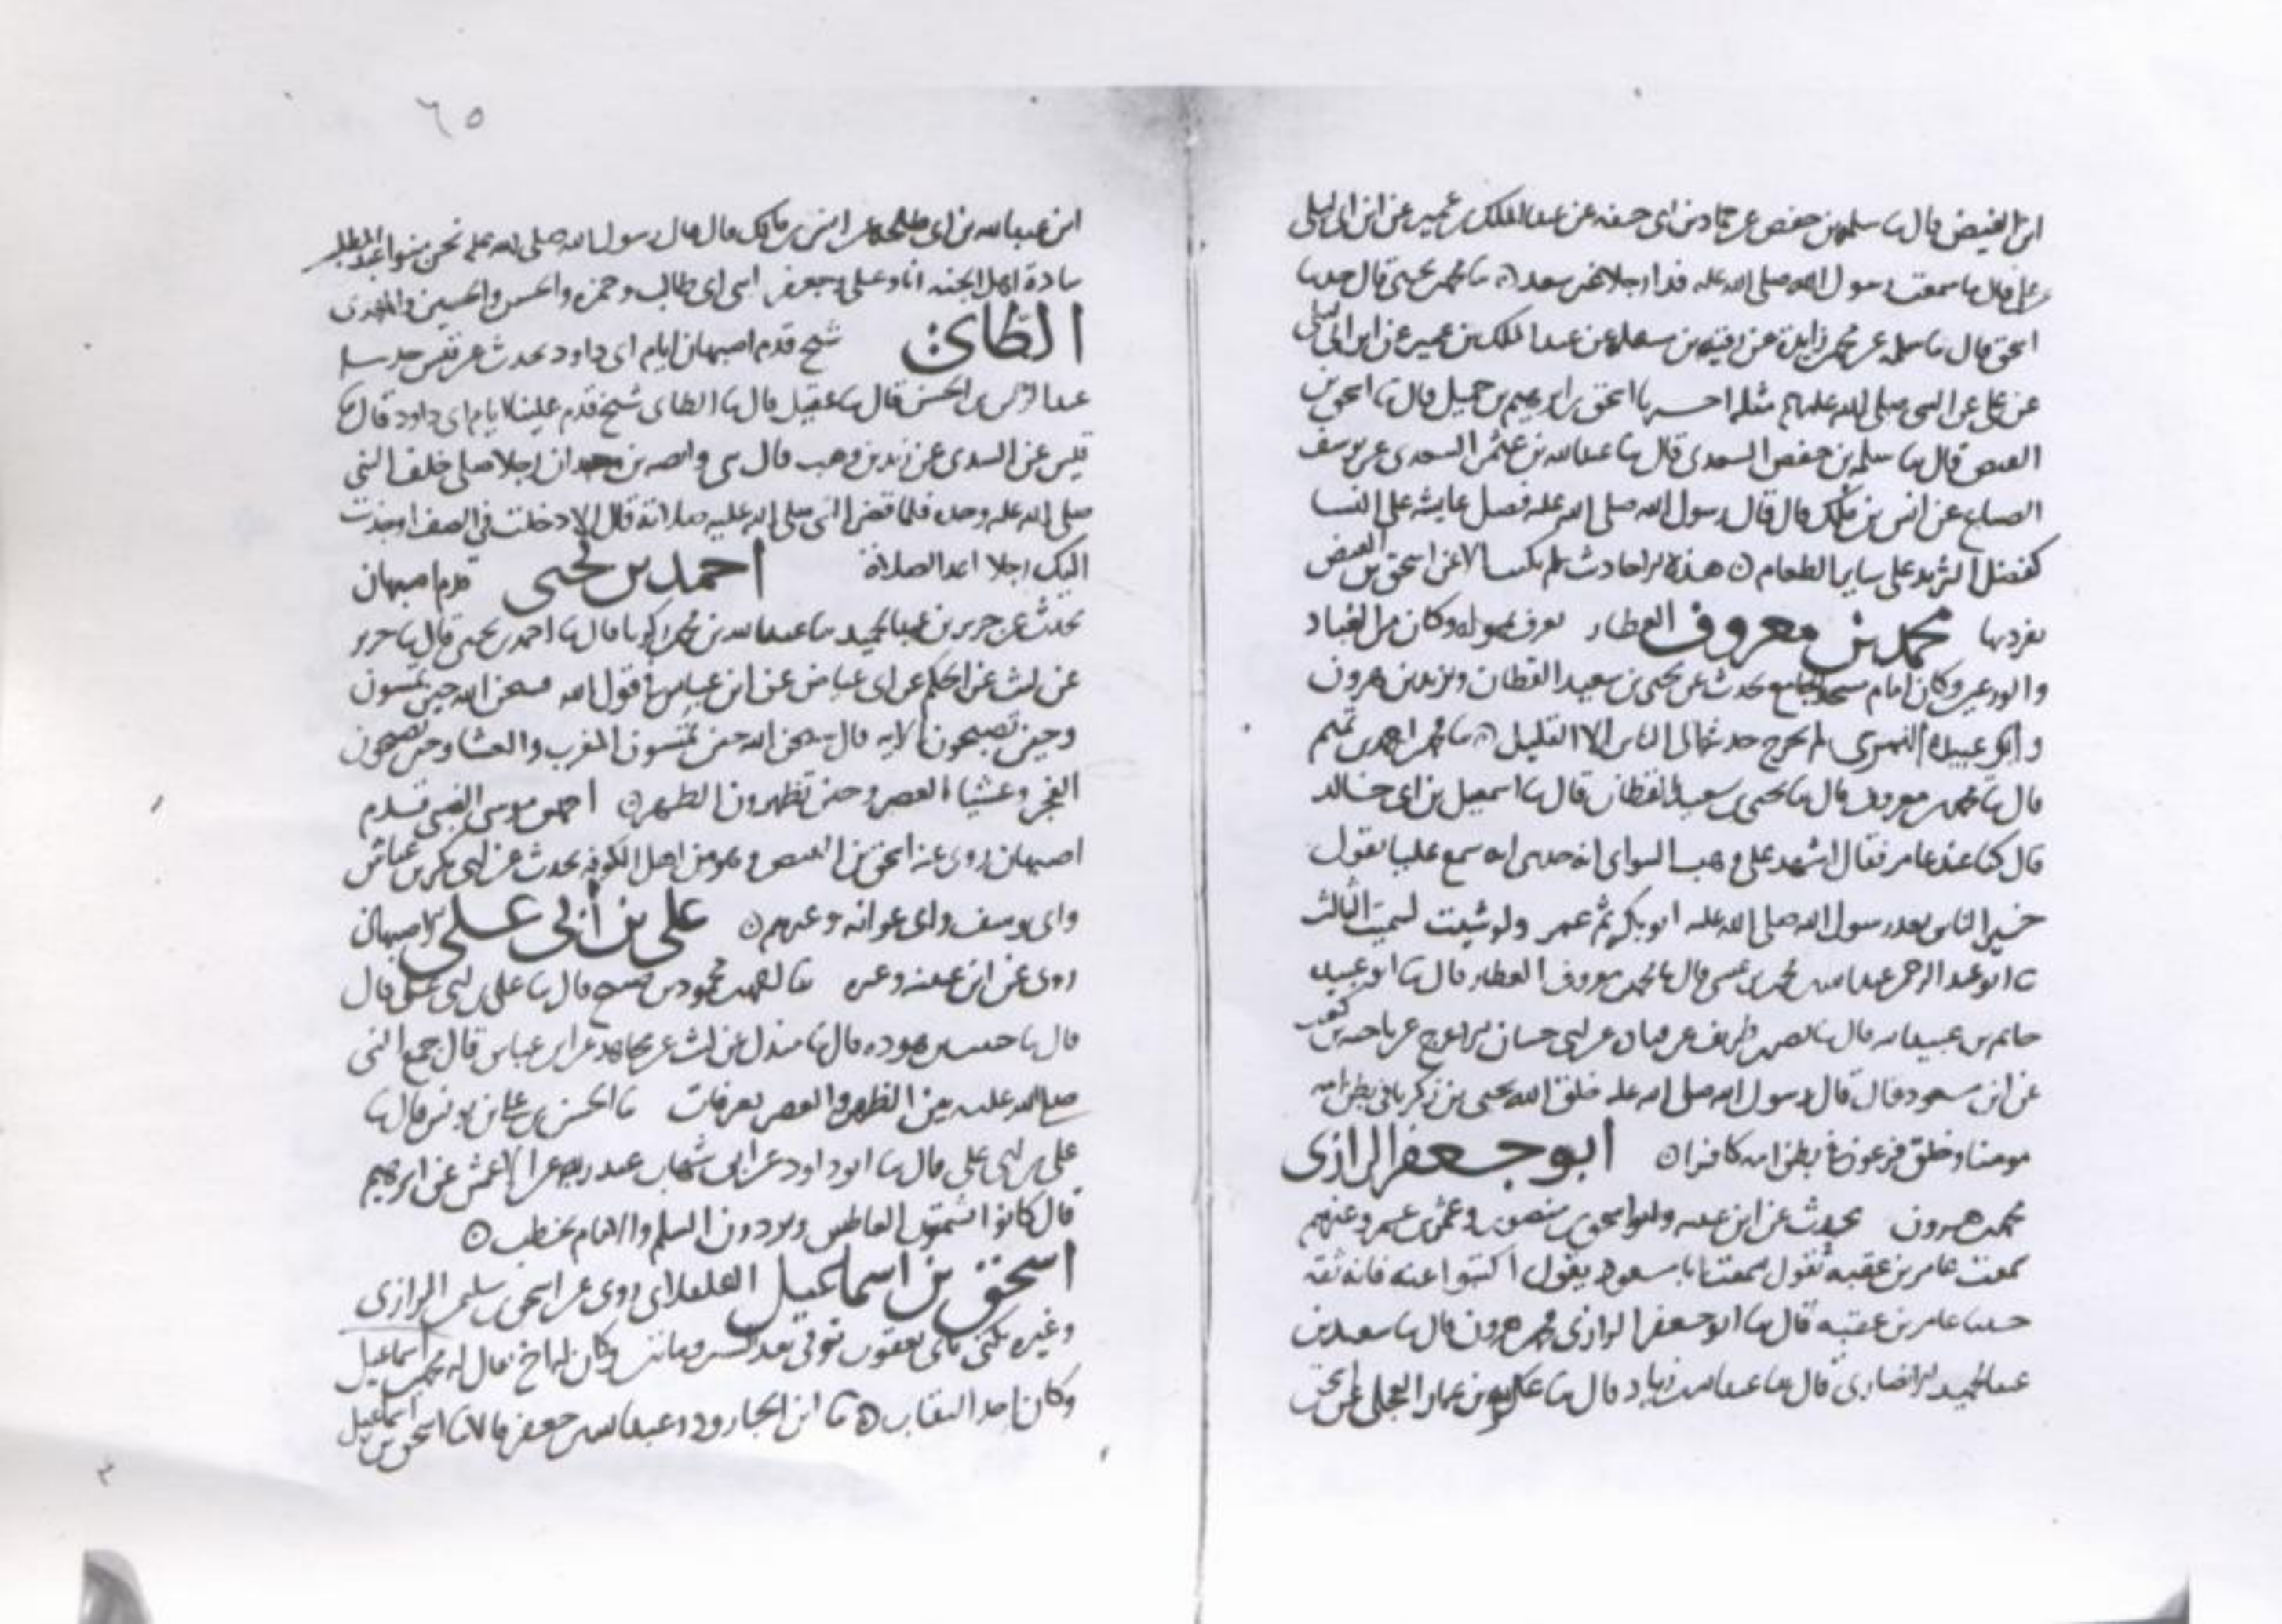 ابن الفيض قال ثنا سلمة بن حفص عن حماد بن ابى حنيفة عن عبد الملك بن عمير عن ابن ابى ليلى
عن على قال ما سمعت رسول الله صلى الله عليه فدا رجلا غير سعد ثنا محمد بن يحيى قال حدثنا
اسحق قال ثنا سلمة عن محمد عن عبد الملك بن عمير عن ابن ابى ليلى
عن على عن النبى صلى الله عليه مثله ثنا اسحق بن ابرهيم بن جميل قال ثنا اسحق بن
الفيض قال ثنا سلمة بن حفص السعدى قال ثنا عبد الله بن عثمن السعدى عن يوسف
الصباغ عن انس بن ملك قال قال رسول الله صلى الله عليه فضل عايشة على النسا
كفضل الثريد على ساير الطعام هذه الاحاديث لم نكتبها الا عن اسحق بن الفيض
تفرد بها محمد بن معروف العطار يعرف وكان من العباد
والورعين وكان امام مسجد الجامع يحدث عن يحيى بن سعيد القطان ويزيد بن هرون
وابى عبيدة لم يخرج حديثه الى الناس الا القليل ثنا محمد بن احمد بن تميم
قال ثنا محمد بن معروف قال ثنا يحيى بن سعيد القطان قال ثنا اسمعيل بن ابى خالد
قال كنا عند عامر فقال اشهد على وهب السواى انه حدثنى انه سمع عليا يقول
خير الناس بعد رسول الله صلى الله عليه ابو بكر ثم عمر ولو شيت لسميت الثالث
ثنا ابو عبد الرحمن عبد الله بن محمد بن عيسى قال ثنا محمد بن معروف العطار قال ثنا ابو عبيدة
حاتم بن عبيد الله قال ثنا نصر بن طريف عن قتادة عن ابى حسان الاعرج عن ناجية بن كعب
عن ابن مسعود قال قال رسول الله صلى الله عليه خلق الله يحيى بن زكريا فى بطن امه
مومنا وخلق فرعون فى بطن امه كافرا ابو جعفر الرازى
محمد بن هرون يحدث عن ابن عيينة وابو يحيى بن منصور وعثمن بن عمر وغيرهم
سمعت عامر بن عقبة يقول سمعت ابا مسعود يقول اكتبوا عنه فانه ثقة
حدثنا عامر بن عقبة قال ثنا ابو جعفر الرازى محمد بن هرون قال ثنا سعيد بن
عبد الحميد الانصارى قال ثنا عبد الله بن زياد قال ثنا عكرمة بن عمار العجلى عن اسحق
٦٥
ابن عبد الله بن ابى طلحة عن انس بن مالك قال قال رسول الله صلى الله عليه نحن بنو عبد المطلب
سادة اهل الجنة انا وعلى وجعفر ابنى ابى طالب وحمزة والحسن والحسين والمهدى
الطائى شيخ قدم اصبهان ايام ابى داود يحدث عن قيس حدثنا
عبد الرحمن بن الحسن قال ثنا عقيل قال ثنا الطاى شيخ قدم علينا ايام ابى داود قال ثنا
قيس عن السدى عن زيد بن وهب قال ثنى وابصة بن معبد ان رجلا صلى خلف النبى
صلى الله عليه وحده فلما قضى النبى صلى الله عليه صلاته قال الا دخلت فى الصف او جذبت
اليك رجلا اعد الصلاة احمد بن يحيى قدم اصبهان
يحدث عن جرير بن عبد الحميد ثنا عبد الله بن محمد بن زكريا قال ثنا احمد بن يحيى قال ثنا جرير
عن ليث عن الحكم عن ابى عياض عن ابن عباس فى قول الله فسبحن الله حين تمسون
وحين تصبحون الاية قال سبحن الله حين تمسون المغرب والعشا وحين تصبحون
الفجر وعشيا العصر وحين تظهرون الظهر احمد بن موسى الضبى قدم
اصبهان روى عنه اسحق بن الفيض وهو من اهل الكوفة يحدث عن ابى بكر بن عياش
وابى يوسف وابى عوانة وغيرهم على بن ابى على اصبهان
روى عن ابن عيينة وغيره محمود بن صبيح قال ثنا على بن ابى على قال
قال ثنا حسين بن هوذة قال ثنا مندل عن ليث عن مجاهد عن ابن عباس قال جمع النبى
صلى الله عليه بين الظهر والعصر بعرفات ثنا الحسن بن على بن يونس قال ثنا
على بن ابى على قال ثنا ابو داود عن ابى شهاب عبد ربه عن الاعمش عن ابرهيم
قال كانوا يشمتون العاطس ويردون السلم والامام يخطب
اسحق بن اسماعيل الفلفلانى روى عن اسحق بن سليمن الرازى
وغيره يكنى بابى يعقوب توفى بعد الستين ومائتين وكان له اخ يقال له محمد بن اسماعيل
وكان احد الثقات ثنا ابن الجارود وعبد الله بن جعفر قالا ثنا اسحق بن اسماعيل